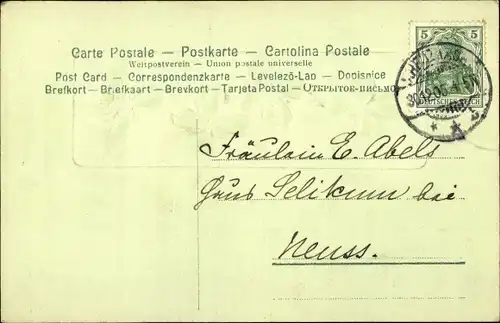 Carte Postale – Postkarte – Cartolina Postale
Weltpostverein – Union postale universelle
Post Card – Correspondenzkarte – Levelező-Lap – Dopisnice
Brefkort – Briefkaart – Brevkort – Tarjeta Postal – Открытое-письмо
5 5
DEUTSCHES REICH
Fräulein E. Abels
Haus Selikum bei
Neuss.